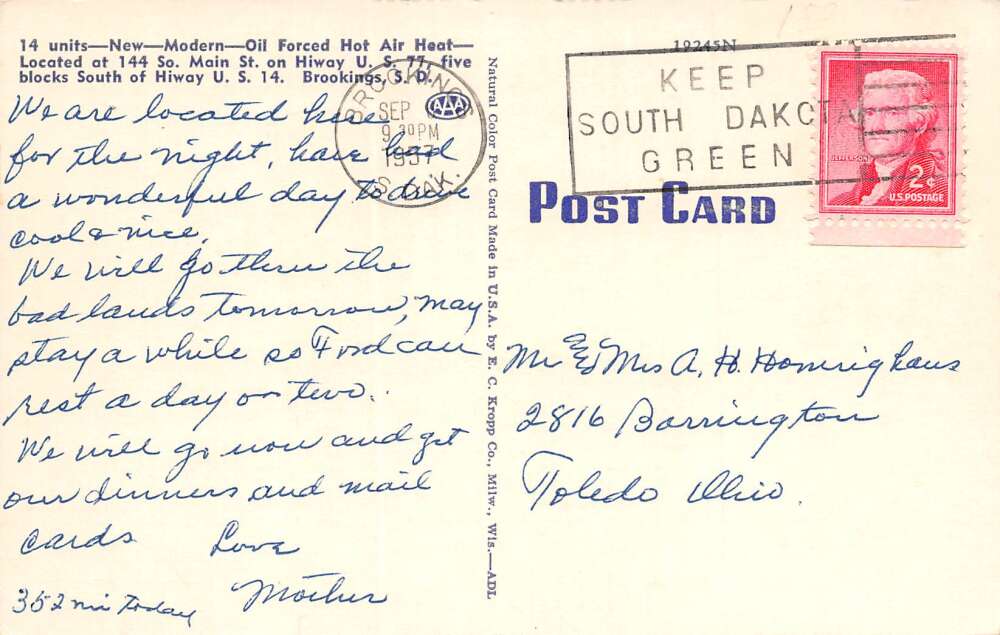 14 units—New—Modern—Oil Forced Hot Air Heat—
Located at 144 So. Main St. on Hiway U. S. 77, five
blocks South of Hiway U. S. 14. Brookings, S. D.
We are located here
for the night, have had
a wonderful day to drive
cool & nice.
We will go thru the
bad lands tomorrow, may
stay a while so Ford can
rest a day or two.
We will go now and get
our dinners and mail
cards Love
Mother
352 mi today
BROOKINGS
SEP
AAA
9 30 PM
1957
S. DAK.
Natural Color Post Card Made in U.S.A. by E. C. Kropp Co., Milw., Wis.—ADL
19245N
KEEP
SOUTH DAKOTA
GREEN
JEFFERSON
2¢
U.S. POSTAGE
POST CARD
Mr & Mrs A. H. Homrighaus
2816 Barrington
Toledo Ohio.